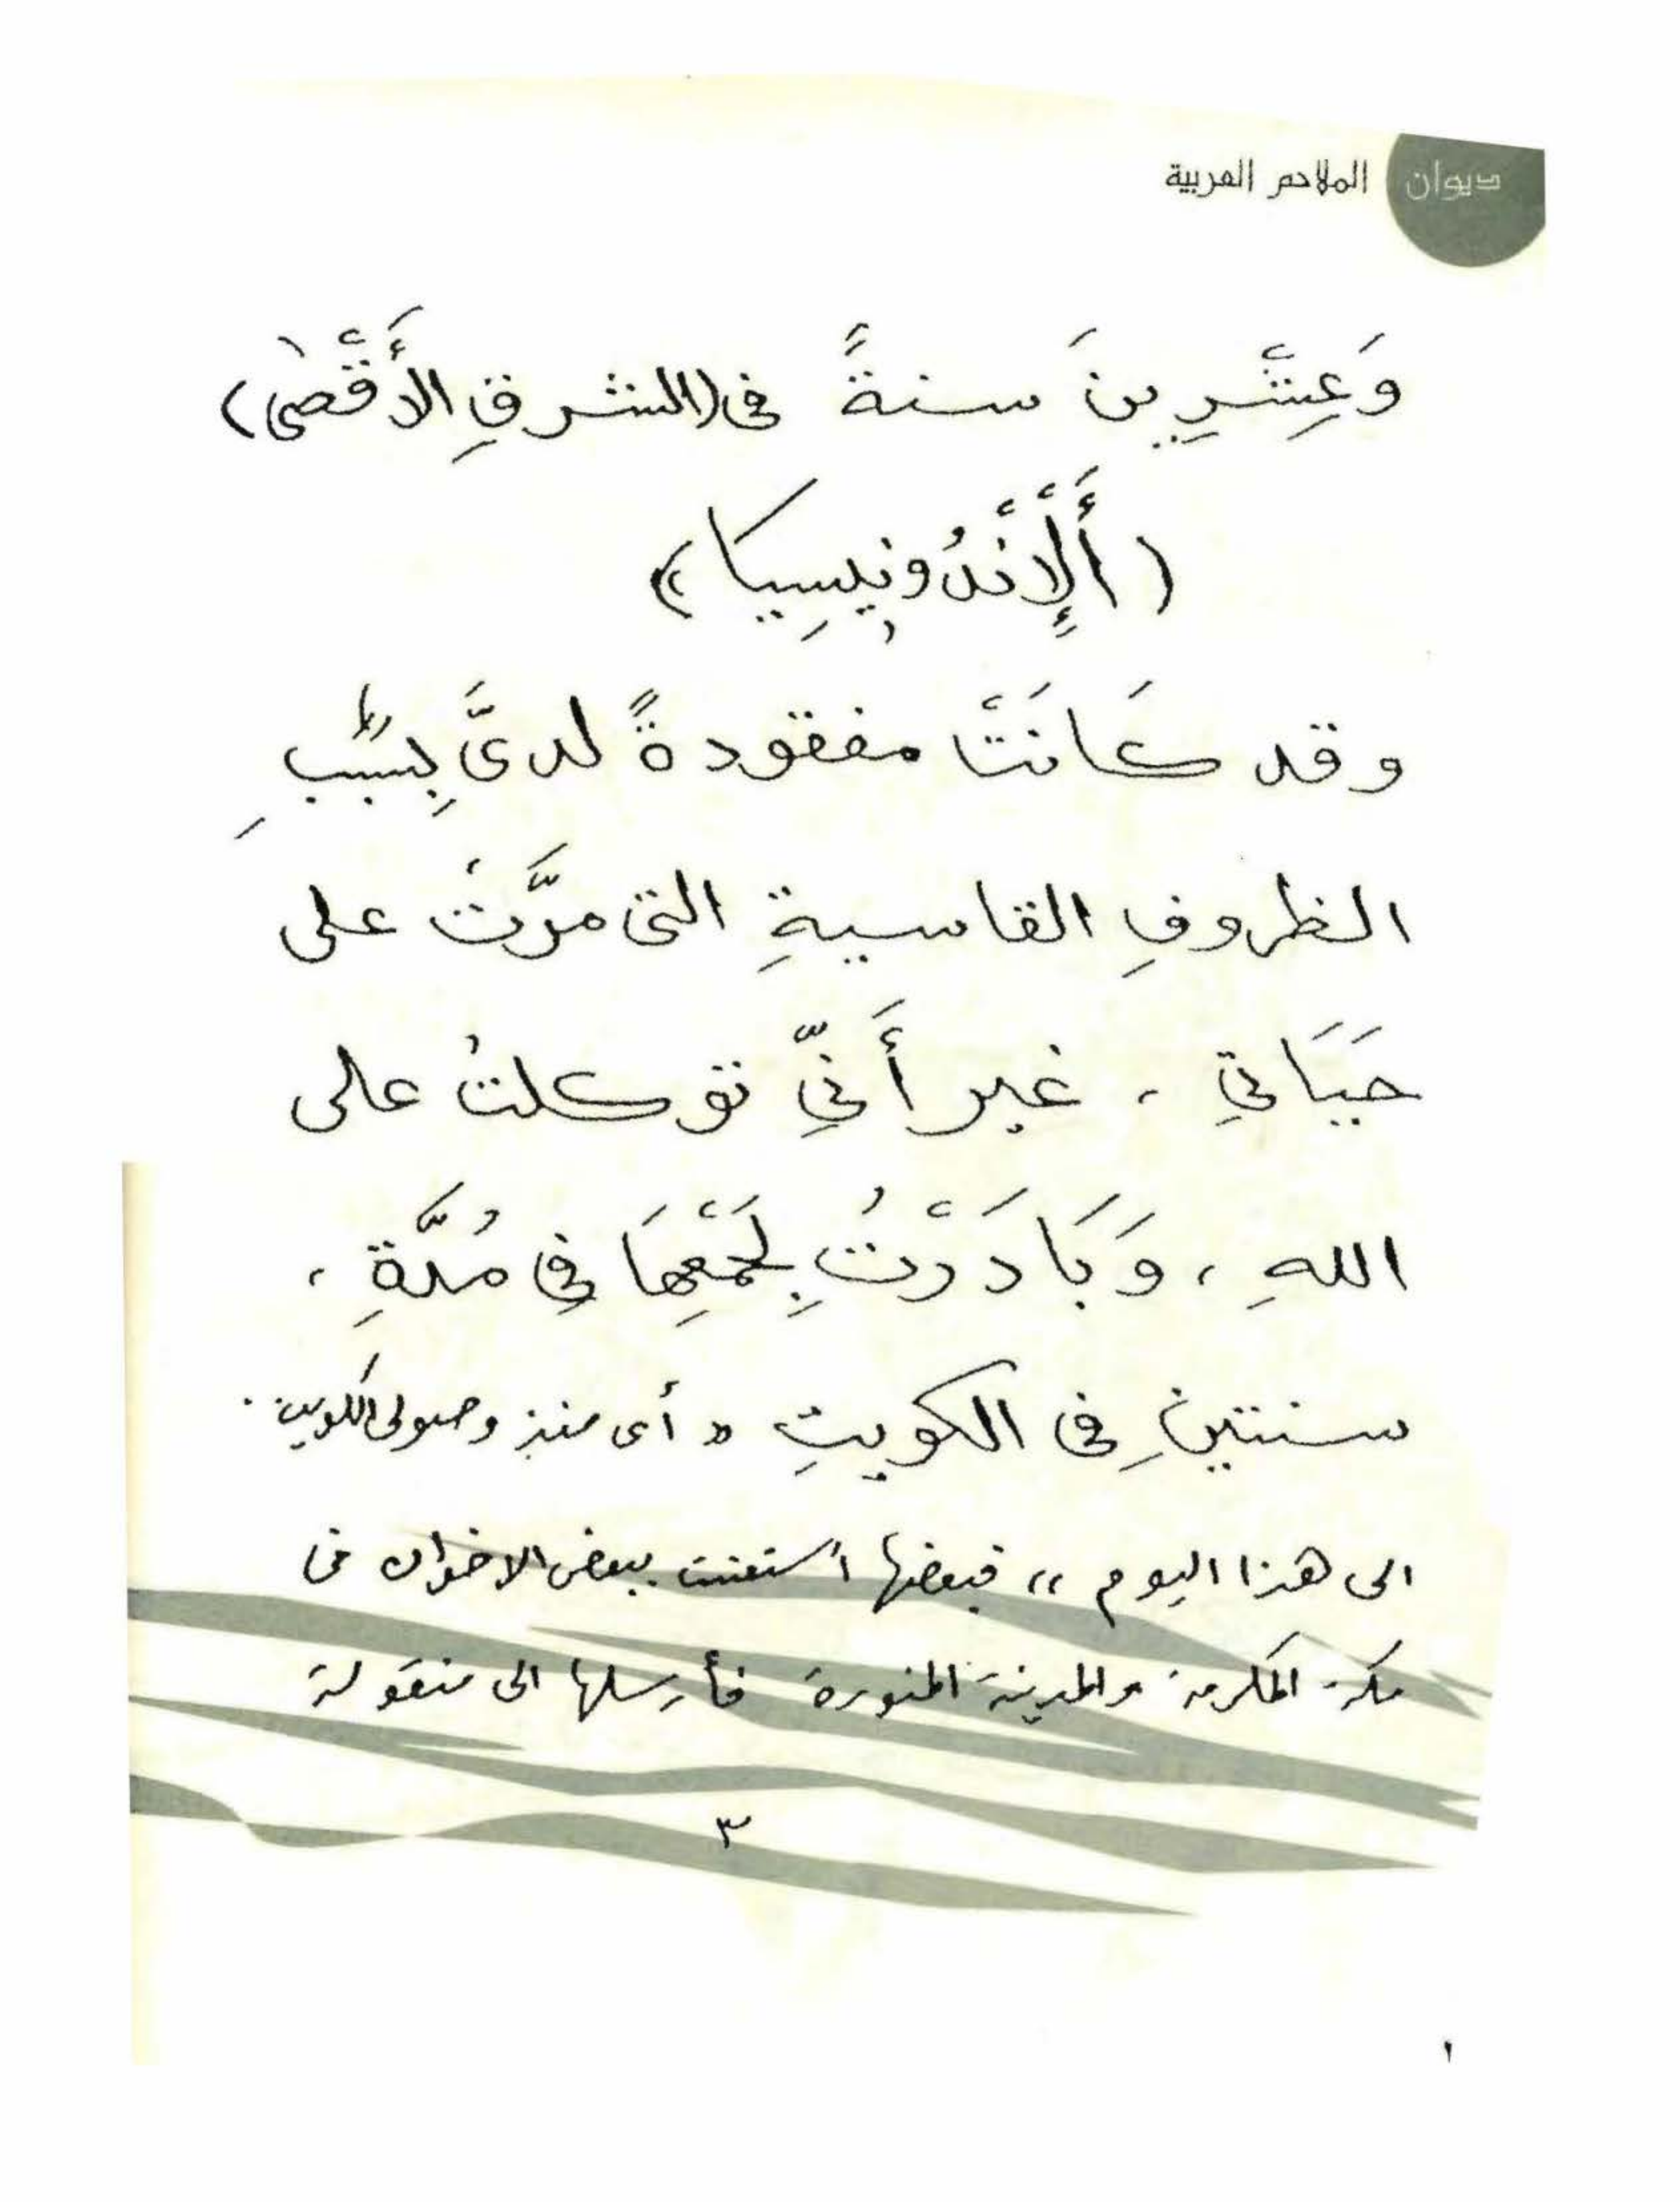 ديوان الملاحم العربية
وَعِشْرِينَ سنةً فى (الشرقِ الأَقْصٰى)
(أَلْإِنْدُونِيسِيَا)
وقد كَانَتْ مفقودةً لدىَّ بِسَبَبِ
الظروفِ القاسيةِ التى مرَّتْ على
حَيَاتِي ، غير أَنِّي توكلتُ على
اللهِ ، وَبَادَرْتُ بِجَمْعِهَا فِي مُدَّةِ ،
سنتينِ فى الكويتِ « أى منذ وصولى الكويت .
الى هذا اليوم ،، فبعضها أستعنت ببعض الاخوان فى
مكة المكرمة والمدينة المنورة فأرسلها الى منقولة
٣